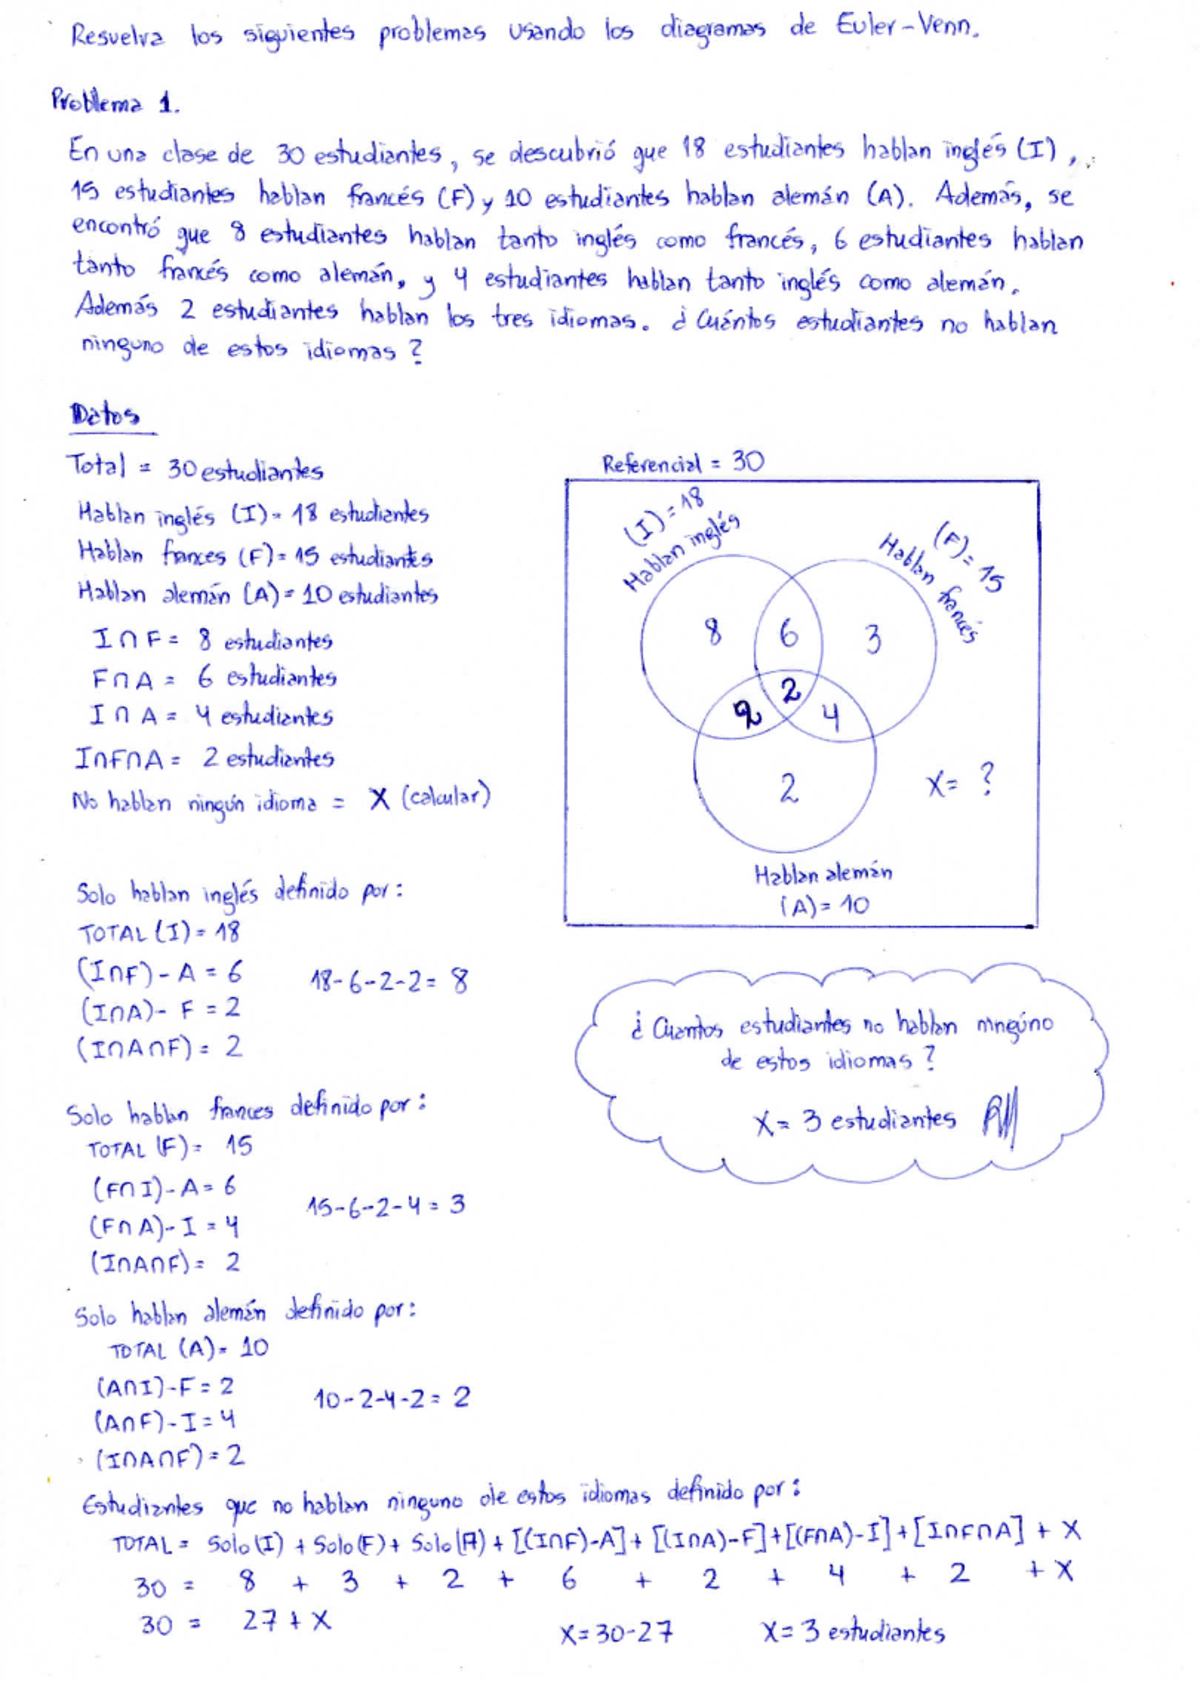 Resuelva los siguientes problemas usando los diagramas de Euler-Venn.
Problema 1.
En una clase de 30 estudiantes, se descubrió que 18 estudiantes hablan inglés (I),
15 estudiantes hablan francés (F) y 10 estudiantes hablan alemán (A). Además, se
encontró que 8 estudiantes hablan tanto inglés como francés, 6 estudiantes hablan
tanto francés como alemán, y 4 estudiantes hablan tanto inglés como alemán.
Además 2 estudiantes hablan los tres idiomas. ¿Cuántos estudiantes no hablan
ninguno de estos idiomas?
Datos
Total = 30 estudiantes
Hablan inglés (I) = 18 estudiantes
Hablan frances (F) = 15 estudiantes
Hablan alemán (A) = 10 estudiantes
I∩F = 8 estudiantes
F∩A = 6 estudiantes
I∩A = 4 estudiantes
I∩F∩A = 2 estudiantes
No hablan ningún idioma = X (calcular)
Referencial = 30
(I) = 18
Hablan inglés
(F) = 15
Hablan francés
8
6
3
2
2
4
2
X = ?
Hablan alemán
(A) = 10
Solo hablan inglés definido por:
TOTAL (I) = 18
(I∩F) - A = 6
18-6-2-2 = 8
(I∩A) - F = 2
(I∩A∩F) = 2
¿Cuantos estudiantes no hablan ningúno
de estos idiomas?
X = 3 estudiantes
Solo hablan frances definido por:
TOTAL (F) = 15
(F∩I) - A = 6
15-6-2-4 = 3
(F∩A) - I = 4
(I∩A∩F) = 2
Solo hablan alemán definido por:
TOTAL (A) = 10
(A∩I) - F = 2
10-2-4-2 = 2
(A∩F) - I = 4
(I∩A∩F) = 2
Estudiantes que no hablan ninguno de estos idiomas definido por:
TOTAL = Solo (I) + Solo (F) + Solo (A) + [(I∩F)-A] + [(I∩A)-F] + [(F∩A)-I] + [I∩F∩A] + X
30 = 8 + 3 + 2 + 6 + 2 + 4 + 2 + X
30 = 27 + X
X = 30-27
X = 3 estudiantes